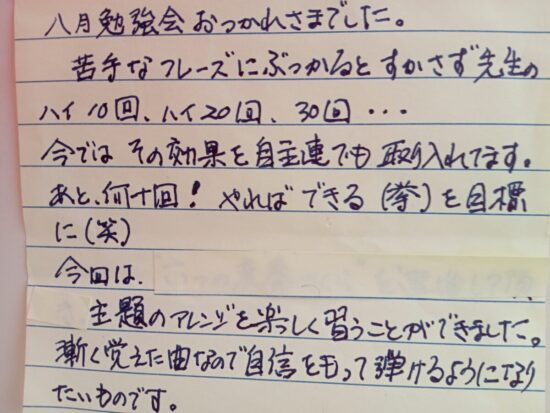 八月勉強会おつかれさまでした。
苦手なフレーズにぶつかるとすかさず先生の
ハイ10回、ハイ20回、30回・・・
今ではその効果を自主連でも取り入れてます。
あと、何十回！やればできる(挙)を目標
に(笑)
今回は、
主題のアレンジを楽しく習うことができました。
漸く覚えた曲なので自信をもって弾けるようになり
たいものです。